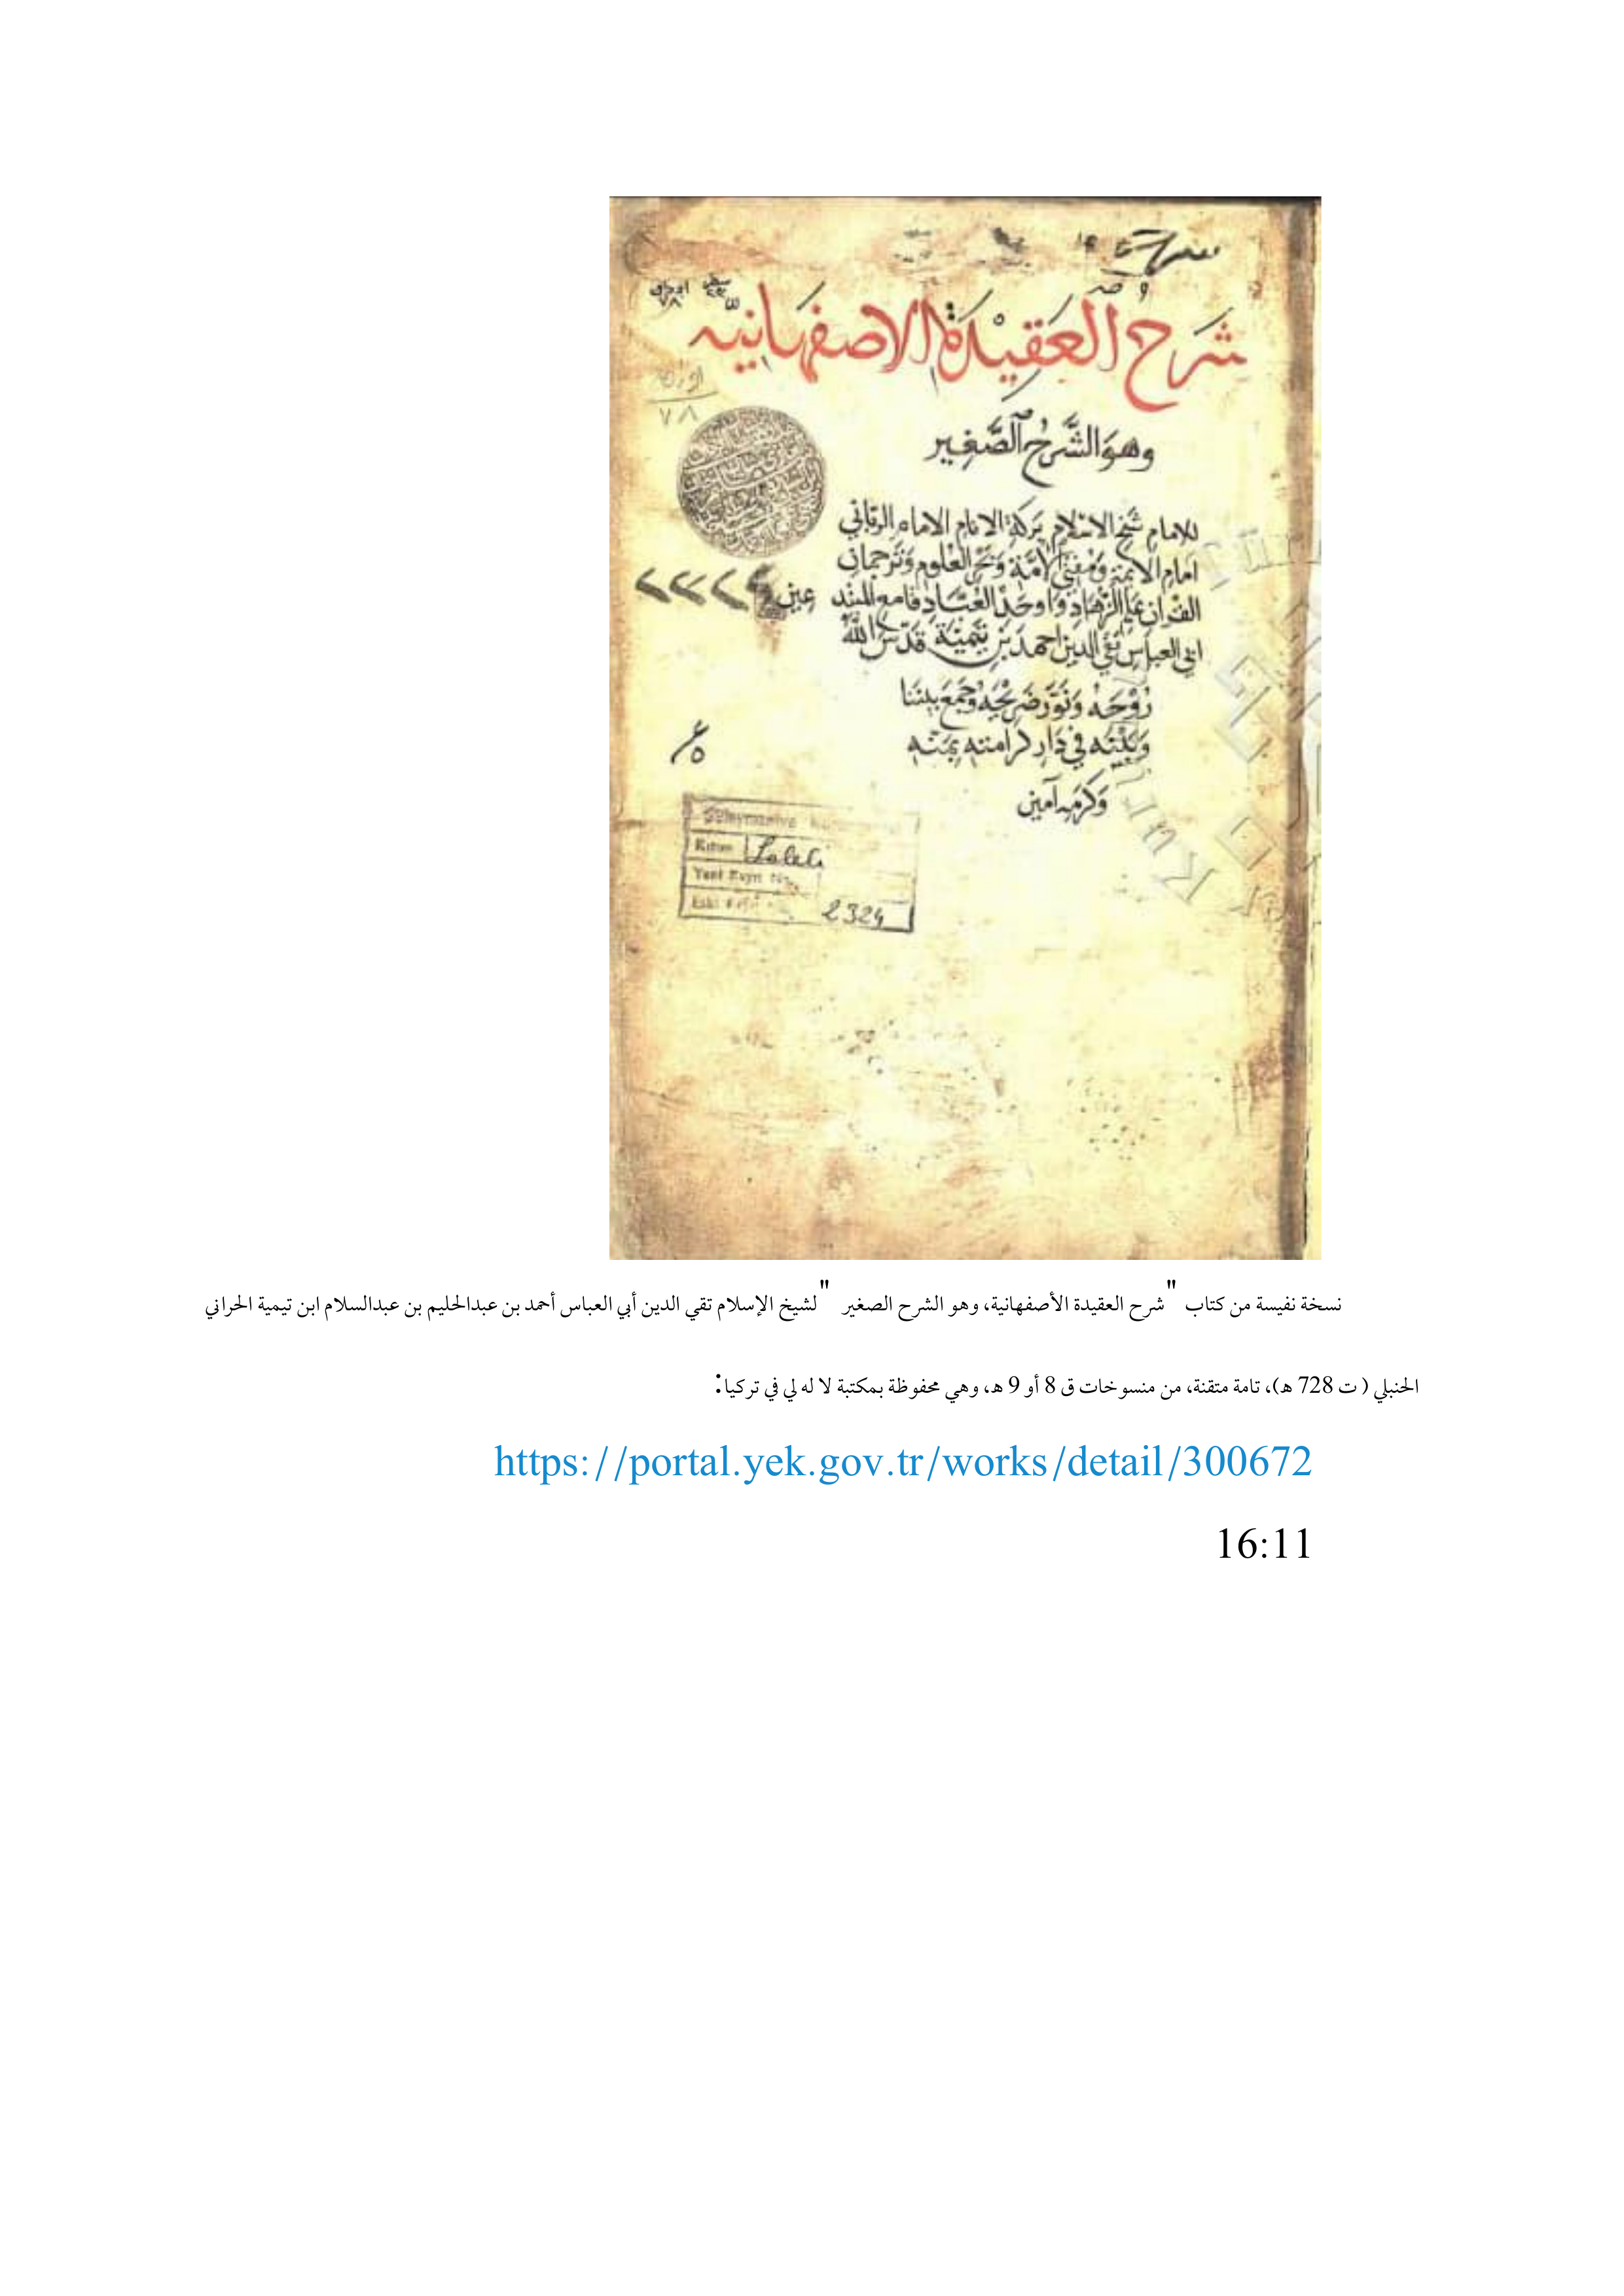 شرح العقيدة الاصفهانيه
وهو الشرح الصغير
للامام شيخ الاسلام بركة الانام الامام الرباني
امام الايمة ومفتي الامة وبحر العلوم وترجمان
القران علم الزهاد واوحد العباد قامع المبتدعين
ابي العباس تقي الدين احمد بن تيمية قدس الله
روحه ونور ضريحه وجمع بيننا
وبينه في دار كرامته بمنه
وكرمه آمين
٧٨
Süleymaniye
Kısmı Laleli
Yeni Kayıt No.
Eski Kayıt
2324
نسخة نفيسة من كتاب "شرح العقيدة الأصفهانية، وهو الشرح الصغير" لشيخ الإسلام تقي الدين أبي العباس أحمد بن عبدالحليم بن عبدالسلام ابن تيمية الحراني
الحنبلي (ت 728 هـ)، تامة متقنة، من منسوخات ق 8 أو 9 هـ، وهي محفوظة بمكتبة لا له لي في تركيا:
https://portal.yek.gov.tr/works/detail/300672
16:11